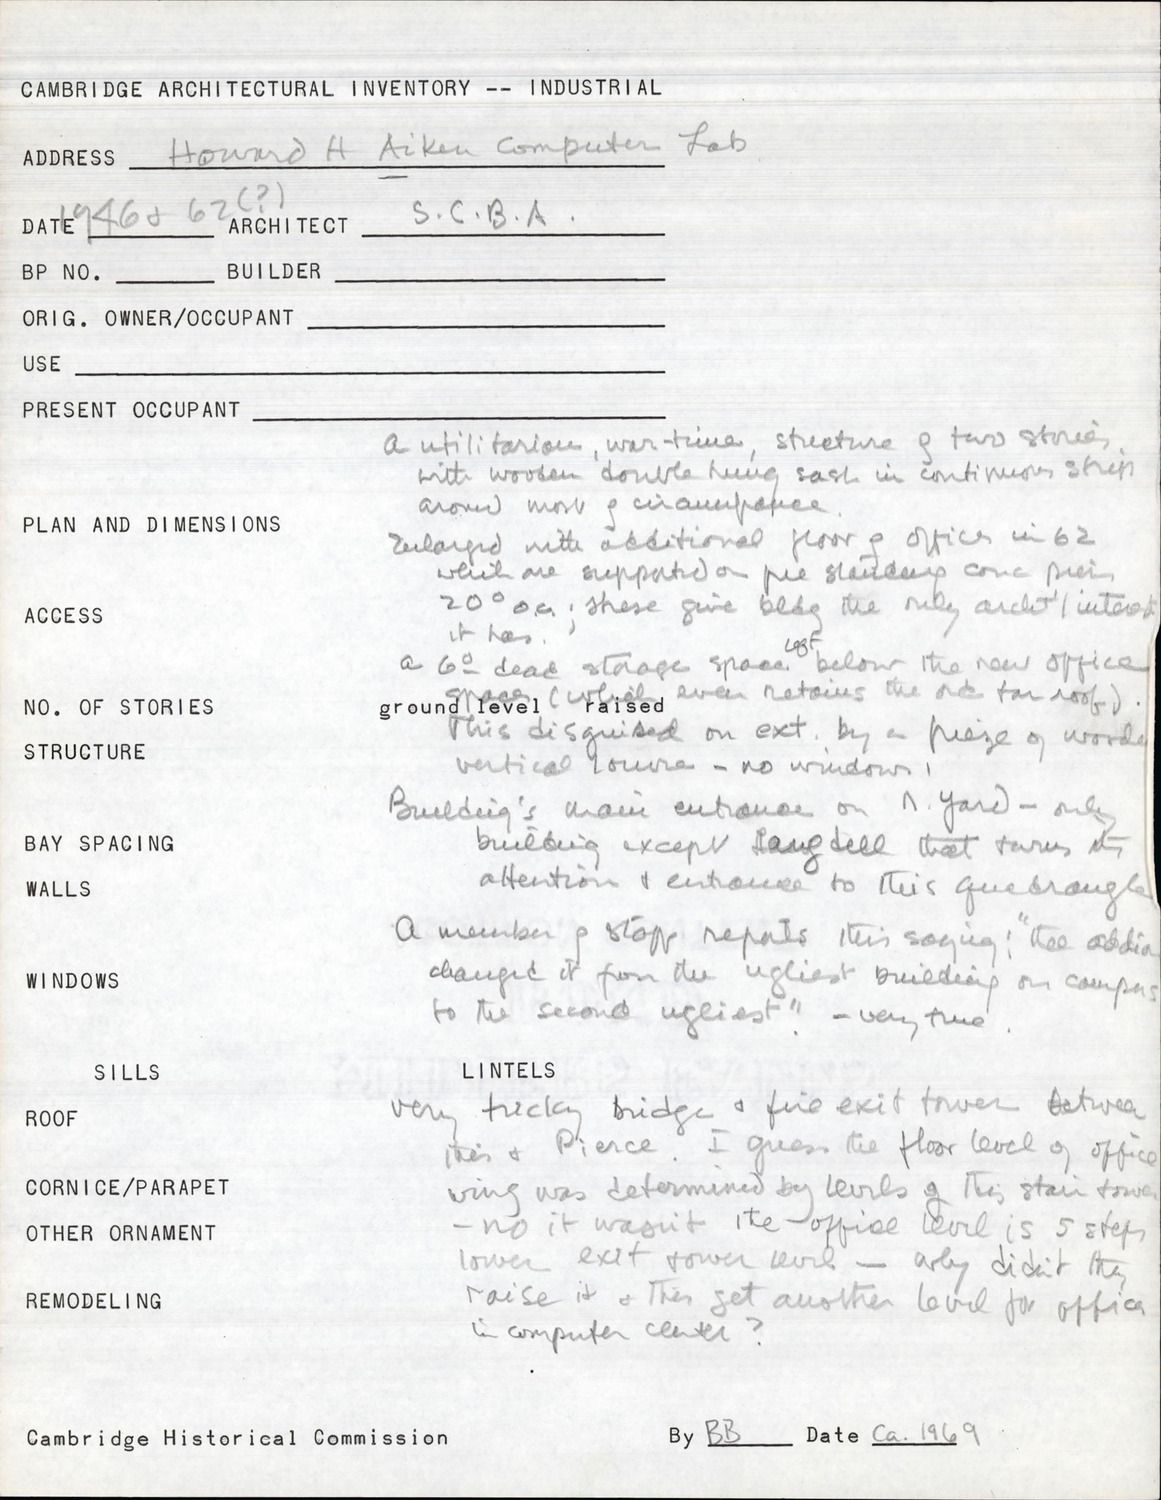 CAMBRIDGE ARCHITECTURAL INVENTORY -- INDUSTRIAL
ADDRESS Howard H Aiken Computer Lab
DATE 1946 & 62(?) ARCHITECT S.C.B.A.
BP NO. BUILDER
ORIG. OWNER/OCCUPANT
USE
PRESENT OCCUPANT
a utilitarian, war-time, structure of two stories,
with wooden double hung sash in continuous strips
around most of circumference.
PLAN AND DIMENSIONS
Enlarged with additional floor of offices in 62
which are supported on free standing conc piers
20° o.c.; these give bldg the only archt'l interest
ACCESS
it has.
a 6° dead storage space left below the new office
space (which even retains the old tar roof).
NO. OF STORIES ground level raised
This disguised on ext. by a frieze of wooden
STRUCTURE
vertical louvre - no windows!
Building's main entrance on N. Yard - only
BAY SPACING
building except Langdell that turns its
WALLS
attention & entrance to this quadrangle
A member of staff reports this saying: "the addition
WINDOWS
changed it from the ugliest building on campus
to the second ugliest". - very true.
SILLS LINTELS
ROOF
very tricky bridge & fire exit tower between
this & Pierce. I guess the floor level of office
CORNICE/PARAPET
wing was determined by levels of this stair tower
OTHER ORNAMENT
- no it wasn't the office level is 5 steps
lower exit tower level — why didn't they
REMODELING
raise it & thus get another level for offices
in computer center?
Cambridge Historical Commission By BB Date Ca. 1969